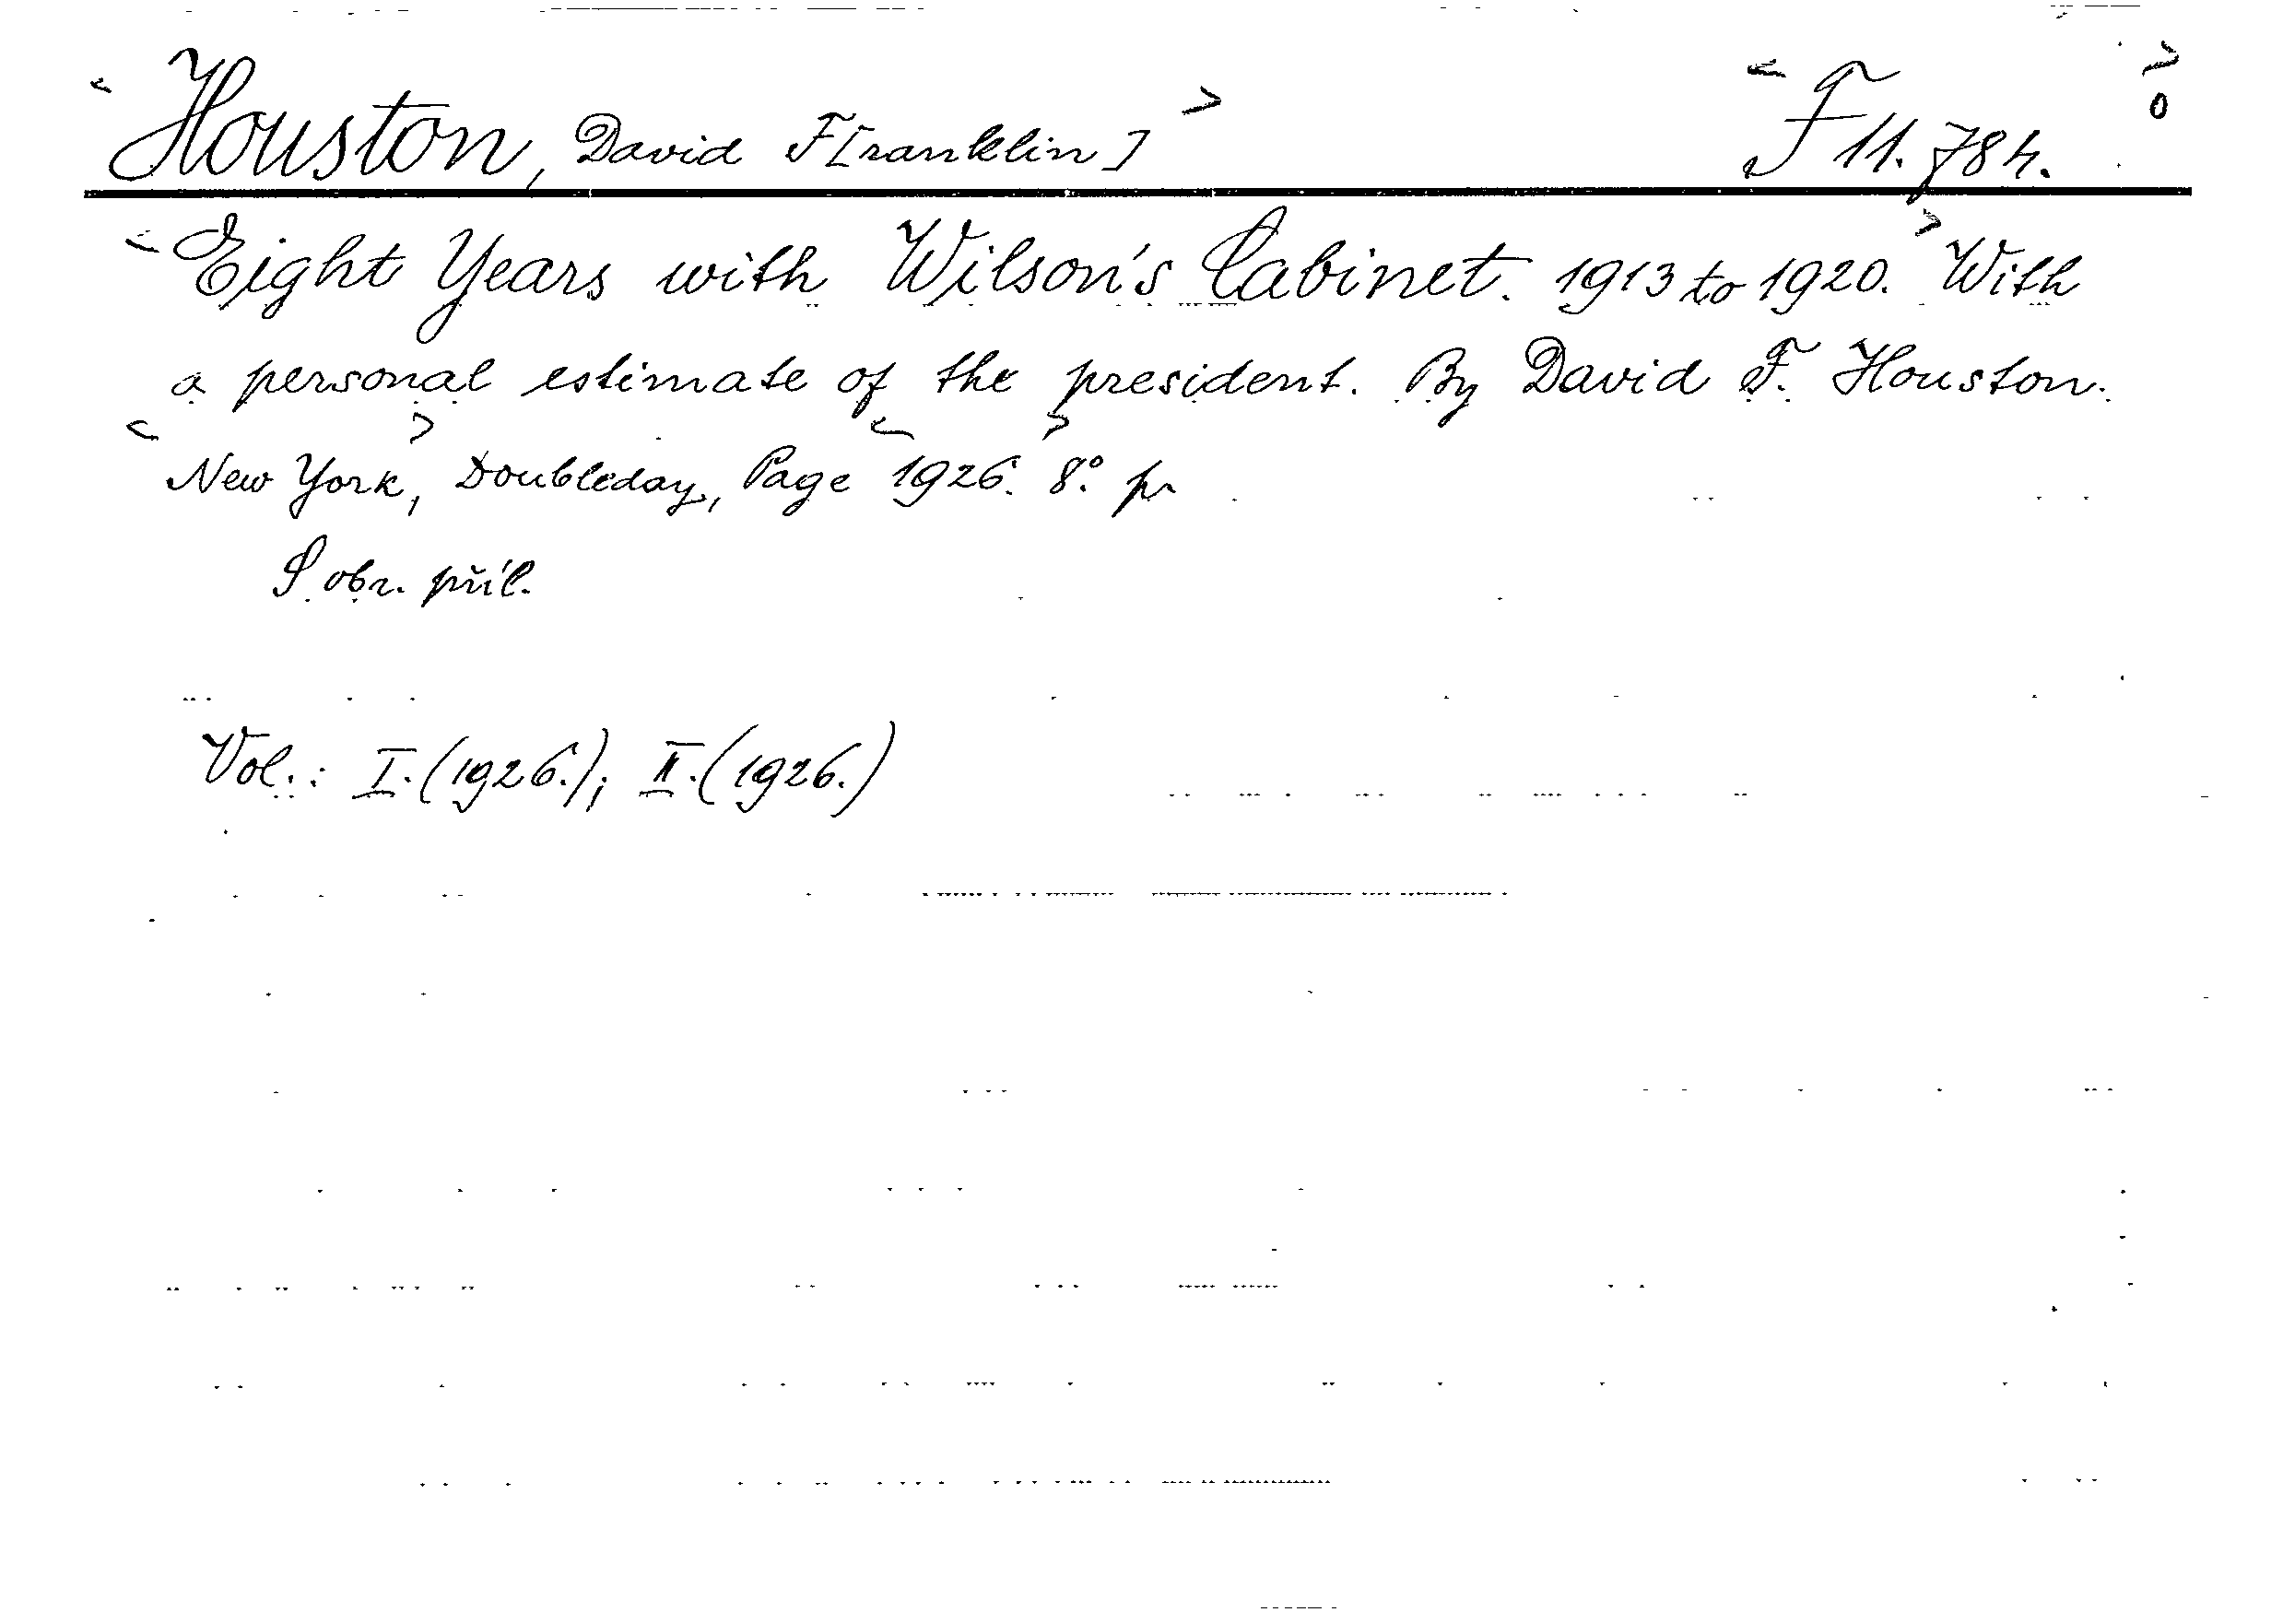 <Houston, David F[ranklin]> <F 11.784.>
0
<Eight Years with Wilson's Cabinet. 1913 to 1920.> With
a personal estimate of the president. By David F. Houston.
<New York,> Doubleday, Page <1926.> 8° pr
S obr. příl.
Vol.: I.(1926.); II.(1926.)